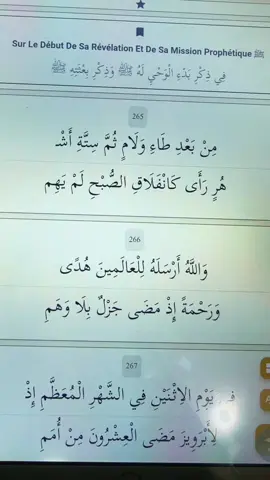 Sur Le Début De Sa Révélation Et De Sa Mission Prophétique ﷺ
فِي ذِكْرِ بَدْءِ الْوَحْيِ لَهُ ﷺ وَذِكْرِ بِعْثَتِهِ ﷺ
265
مِنْ بَعْدِ طَاءٍ وَلَامٍ ثُمَّ سِتَّةِ أَشْـ
هُرٍ رَأَى كَانْفِلَاقِ الصُّبْحِ لَمْ يَهِمِ
266
وَاللَّهُ أَرْسَلَهُ لِلْعَالَمِينَ هُدًى
وَرَحْمَةً إِذْ مَضَى جَزْلٌ بِلَا وَهَمِ
267
فِي يَوْمِ الِاثْنَيْنِ فِي الشَّهْرِ الْمُعَظَّمِ إِذْ
لِأَبْرَوِيزَ مَضَى الْعِشْرُونَ مِنْ أُمَمِ